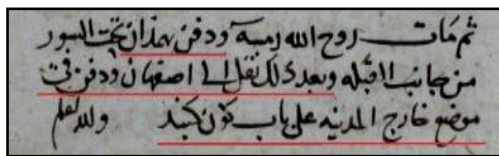 ثم مات روح الله رمسه ودفن بهمذان تحت السور
من جانب القبله وبعد ذلك نقل الى اصفهان ودفن فى
موضع خارج المدينه على باب كبند والله اعلم